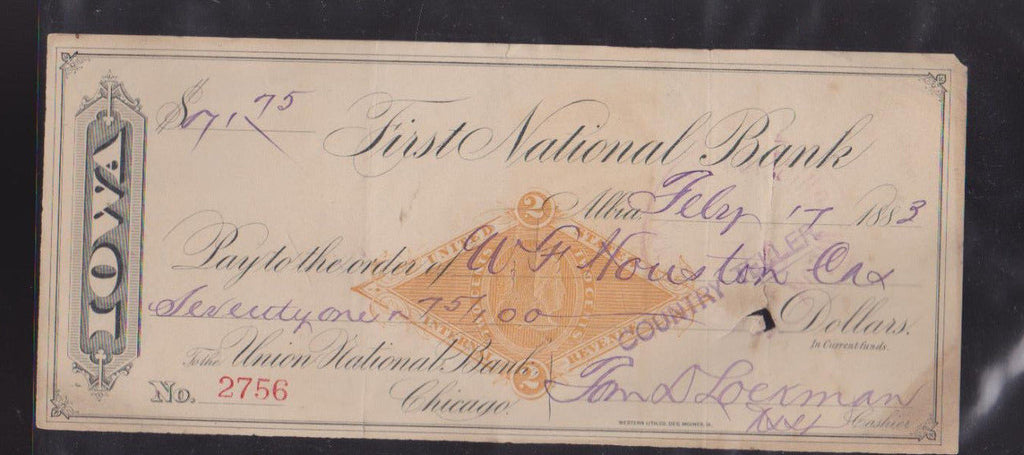 IOWA
$71.75
First National Bank
Albia Feby 17 1883
Pay to the order of W F Houston Cas
Seventy one n 75/100 Dollars.
In Current funds.
To the Union National Bank,
Chicago.
No. 2756
Tom D Lockman
Cashier
UNITED STATES
INTERNAL REVENUE
2
2
COUNTRY TELLER
WESTERN LITH. CO. DES MOINES, IA.